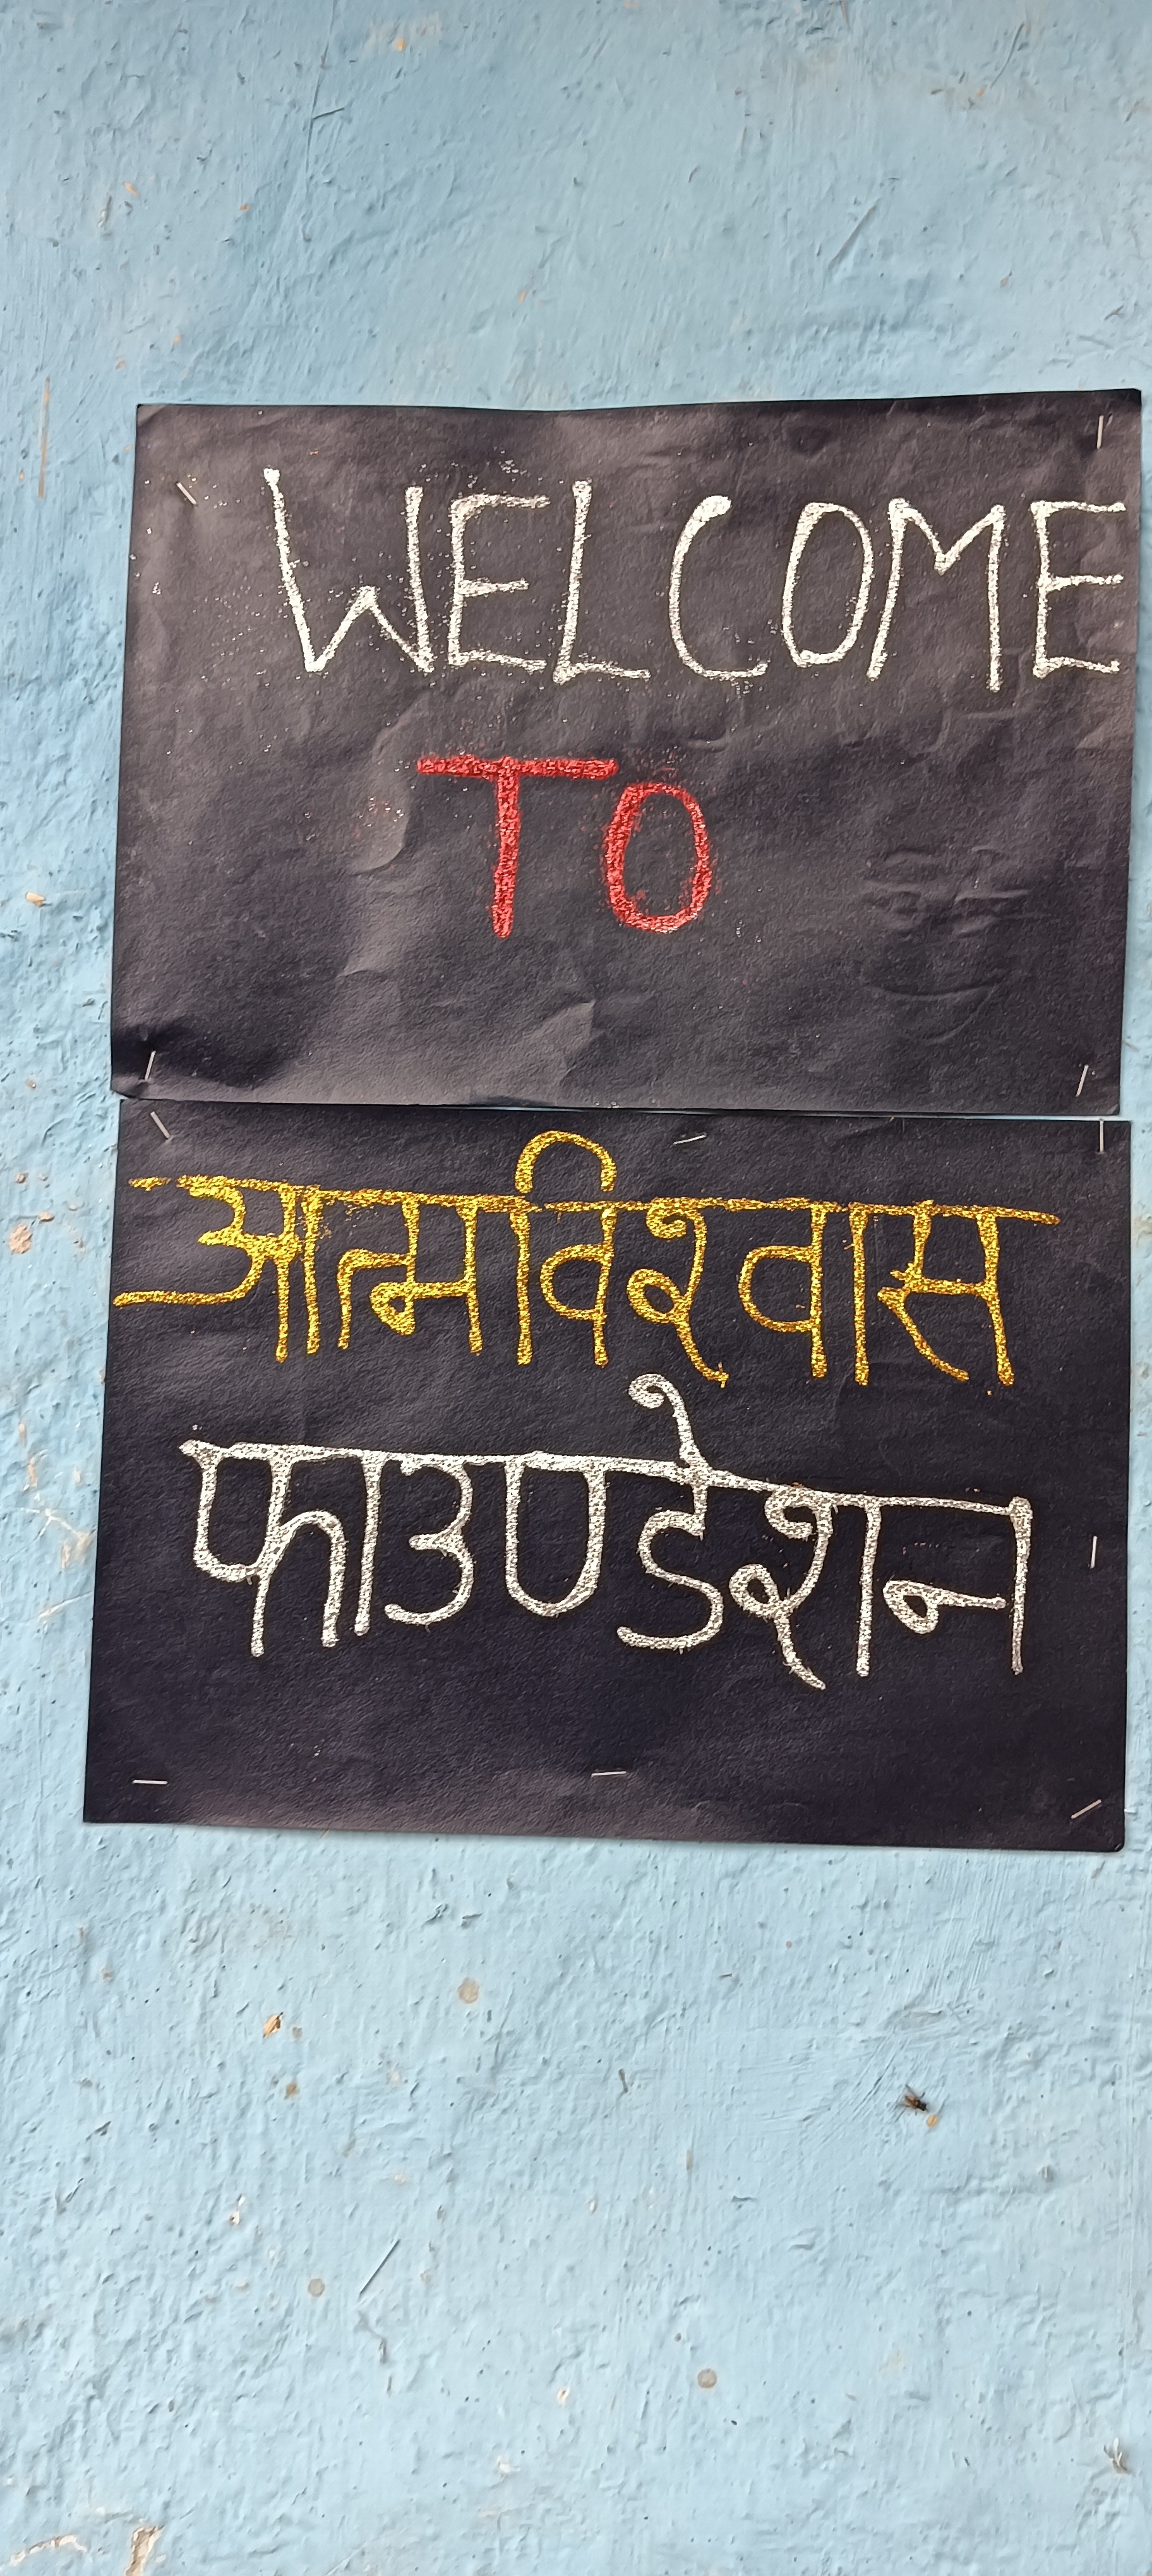 WELCOME
TO
आत्मविश्वास
फाउण्डेशन